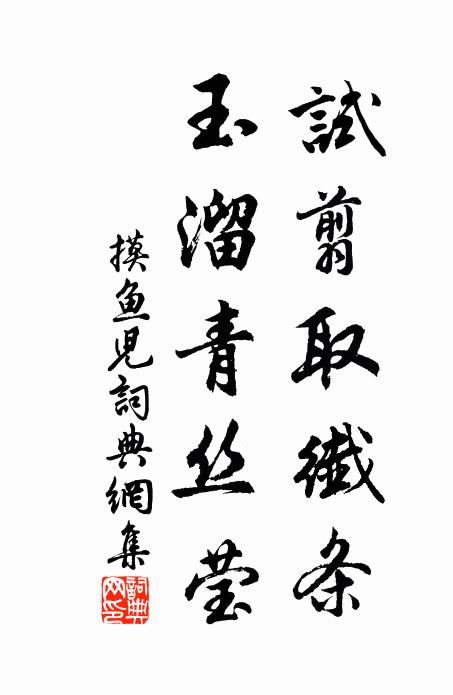 試翦取纖条
玉溜青丝莹
摸鱼児詞典網集
詞典网印